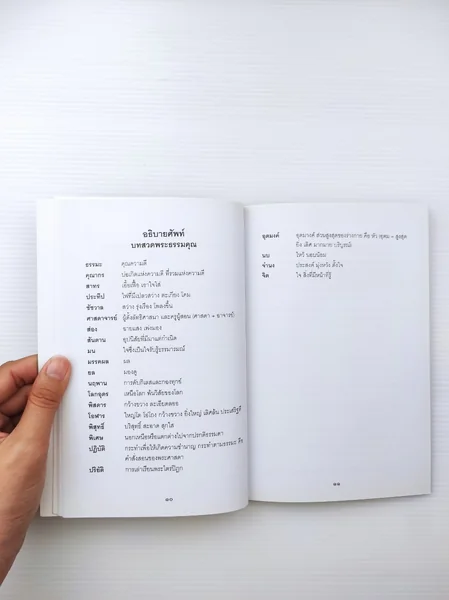 อธิบายศัพท์
บทสวดพระธรรมคุณ
ธรรมะ คุณความดี
คุณากร บ่อเกิดแห่งความดี ที่รวมแห่งความดี
สาทร เอื้อเฟื้อ เอาใจใส่
ประทีป ไฟที่มีเปลวสว่าง ตะเกียง โคม
ชัชวาล สว่าง รุ่งเรือง โพลงขึ้น
ศาสดาจารย์ ผู้ตั้งลัทธิศาสนา และครูผู้สอน (ศาสดา + อาจารย์)
ส่อง ฉายแสง เพ่งมอง
สันดาน อุปนิสัยที่มีมาแต่กำเนิด
มน ใจซึ่งเป็นใจรับรู้ธรรมารมณ์
มรรคผล ผล
ยล มองดู
นฤพาน การดับกิเลสและกองทุกข์
โลกอุดร เหนือโลก พ้นวิสัยของโลก
พิสดาร กว้างขวาง ละเอียดลออ
โอฬาร ใหญ่โต โอ่โถง กว้างขวาง ยิ่งใหญ่ เลิศล้น ประเสริฐดี
พิสุทธิ์ บริสุทธิ์ สะอาด สุกใส
พิเศษ นอกเหนือหรือแตกต่างไปจากปรกติธรรมดา
ปฏิบัติ กระทำเพื่อให้เกิดความชำนาญ กระทำตามธรรมะ คือ
คำสั่งสอนของพระศาสดา
ปริยัติ การเล่าเรียนพระไตรปิฎก
๑๐
อุตมงค์ อุตมางค์ ส่วนสูงสุดของร่างกาย คือ หัว อุตม = สูงสุด
ยิ่ง เลิศ มากมาย บริบูรณ์
นบ ไหว้ นอบน้อม
จำนง ประสงค์ มุ่งหวัง ตั้งใจ
จิต ใจ สิ่งที่มีหน้าที่รู้
๑๑